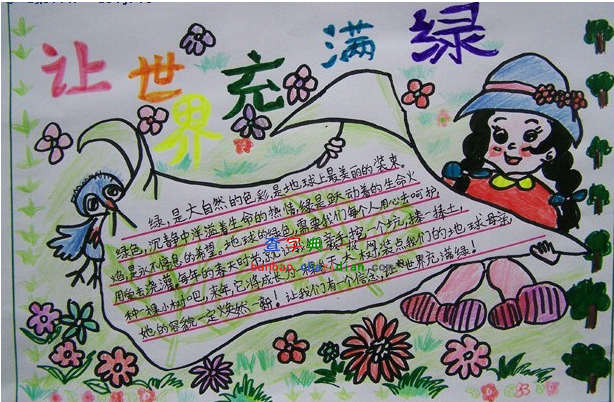 让世界充满绿
绿,是大自然的色彩,是地球上最美丽的装束
绿色,沉静中洋溢着生命的热情,绿是跃动着的生命火
焰是永不停息的希望。地球的绿色,需要我们每个人用心去呵护,
用爱去浇灌。每年的春天时节,就让我们亲手挖一个坑,捧一捧土,
种一棵小树吧,来年,它将成长为参天大树,装点我们的地球母亲
地的容貌一定焕然一新!让我们有一个信念:让世界充满绿!
查字典
Dunbao.chazidian.com